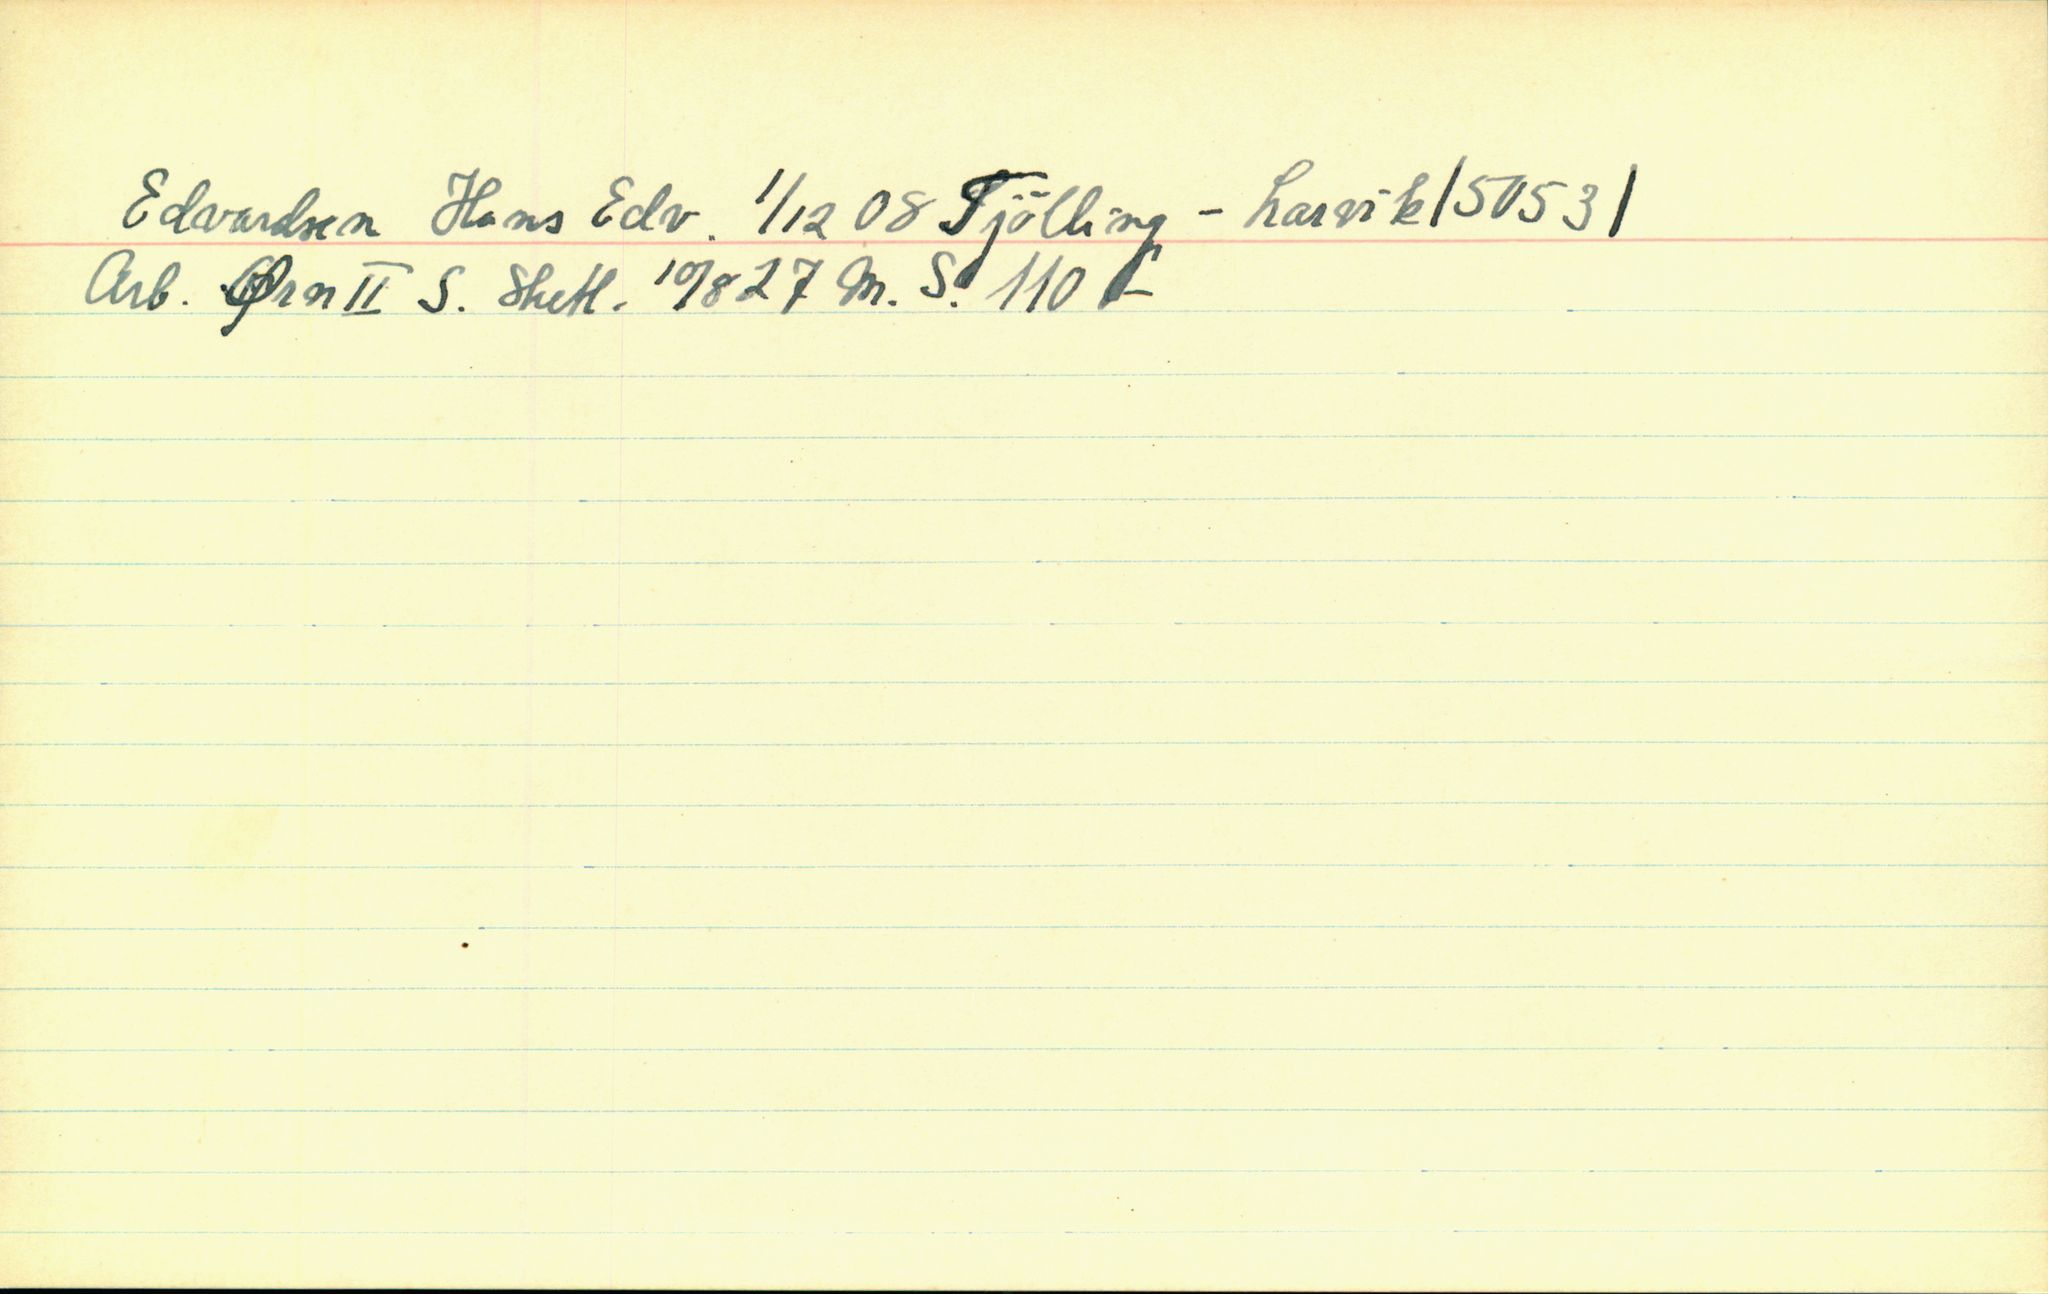 Edvardsen Hans Edv. 1/12 08 Tjölling - Larvik/5053/
Arb. Ørn II S. Shetl. 10/8 27 M. S. 110 -